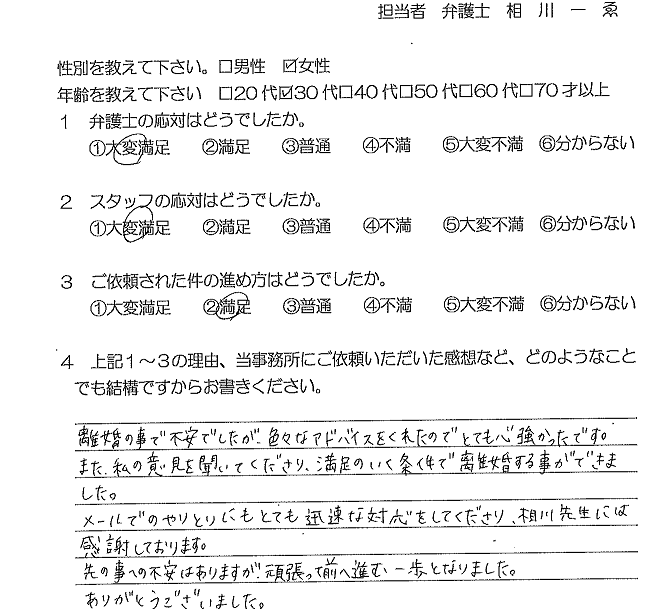 担当者 弁護士 相川一゙ゑ
性別を教えて下さい。□男性 ☑女性
年齢を教えて下さい □20代☑30代□40代□50代□60代□70才以上
1 弁護士の応対はどうでしたか。
①大変満足 ②満足 ③普通 ④不満 ⑤大変不満 ⑥分からない
2 スタッフの応対はどうでしたか。
①大変満足 ②満足 ③普通 ④不満 ⑤大変不満 ⑥分からない
3 ご依頼された件の進め方はどうでしたか。
①大変満足 ②満足 ③普通 ④不満 ⑤大変不満 ⑥分からない
4 上記1~3の理由、当事務所にご依頼いただいた感想など、どのようなこと
でも結構ですからお書きください。
離婚の事で不安でしたが、色々なアドバイスをくれたのでとても心強かったです。
また、私の意見を聞いてくださり、満足のいく条件で離婚する事ができま
した。
メールでのやりとりにもとても迅速な対応をしてくださり、相川先生には
感謝しております。
先の事への不安はありますが、頑張って前へ進む一歩となりました。
ありがとうございました。